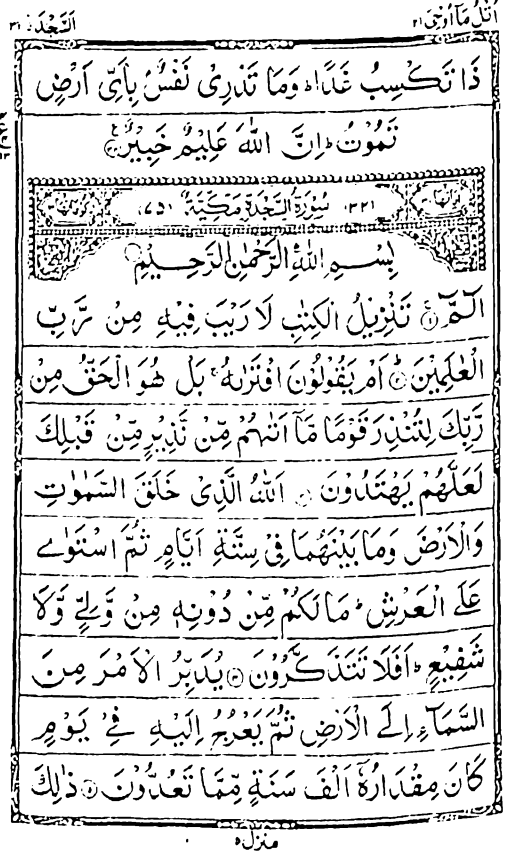 اُتْلُ مَآ اُوْحِیَ ٢١
اَلسَّجْدَة ٣٢
ذَا تَكْسِبُ غَدًا ؕ وَمَا تَدْرِیْ نَفْسٌۢ بِاَیِّ اَرْضٍ
تَمُوْتُ ؕ اِنَّ اللّٰهَ عَلِیْمٌ خَبِیْرٌ
﴿٣٢﴾ سُوْرَةُ السَّجْدَةِ مَكِّیَّةٌ ﴿٧٥﴾
بِسْمِ اللّٰهِ الرَّحْمٰنِ الرَّحِیْمِ
الٓمّٓ ۚ﴿١﴾ تَنْزِیْلُ الْكِتٰبِ لَا رَیْبَ فِیْهِ مِنْ رَّبِّ
الْعٰلَمِیْنَ ؕ﴿٢﴾ اَمْ یَقُوْلُوْنَ افْتَرٰىهُ ۚ بَلْ هُوَ الْحَقُّ مِنْ
رَّبِّكَ لِتُنْذِرَ قَوْمًا مَّاۤ اَتٰىهُمْ مِّنْ نَّذِیْرٍ مِّنْ قَبْلِكَ
لَعَلَّهُمْ یَهْتَدُوْنَ ﴿٣﴾ اَللّٰهُ الَّذِیْ خَلَقَ السَّمٰوٰتِ
وَالْاَرْضَ وَمَا بَیْنَهُمَا فِیْ سِتَّةِ اَیَّامٍ ثُمَّ اسْتَوٰی
عَلَی الْعَرْشِ ؕ مَا لَكُمْ مِّنْ دُوْنِهٖ مِنْ وَّلِیٍّ وَّلَا
شَفِیْعٍ ؕ اَفَلَا تَتَذَكَّرُوْنَ ﴿٤﴾ یُدَبِّرُ الْاَمْرَ مِنَ
السَّمَآءِ اِلَی الْاَرْضِ ثُمَّ یَعْرُجُ اِلَیْهِ فِیْ یَوْمٍ
كَانَ مِقْدَارُهٗۤ اَلْفَ سَنَةٍ مِّمَّا تَعُدُّوْنَ ﴿٥﴾ ذٰلِكَ
منزل ٥